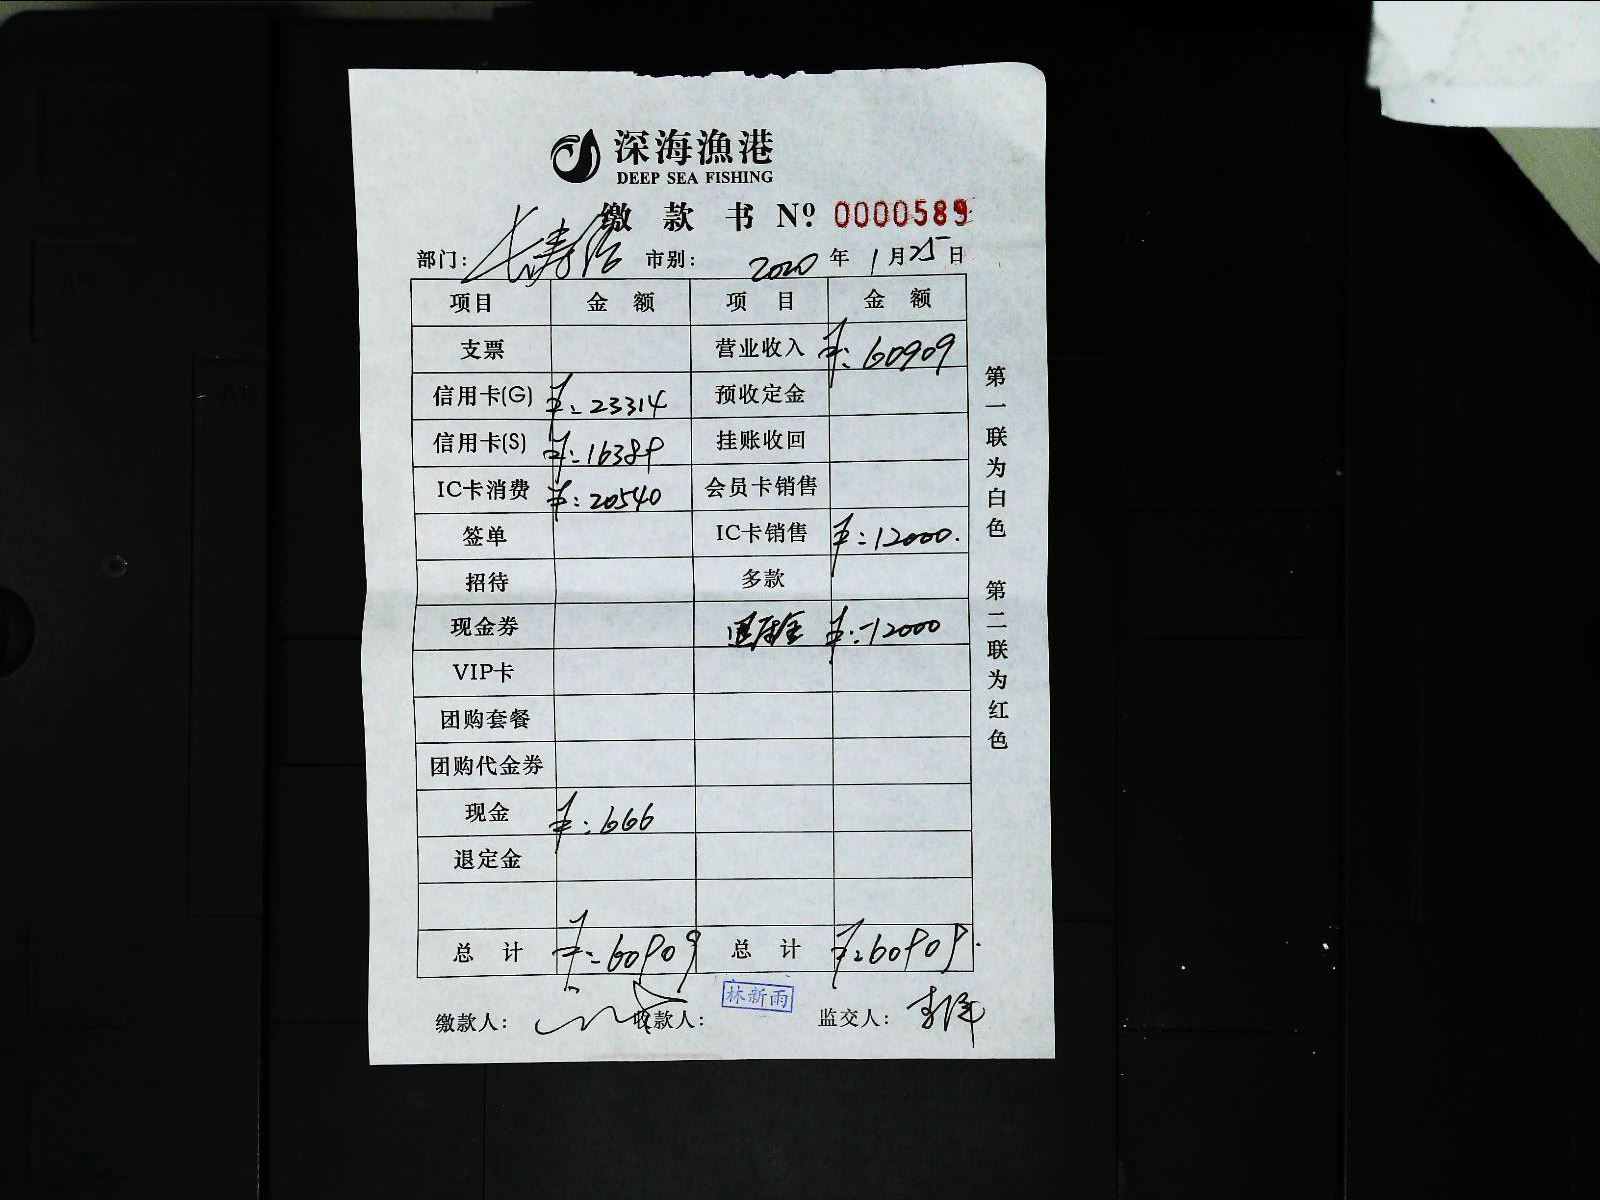 深海漁港
DEEP SEA FISHING
缴款书 Nº 0000589
部门: 长寿路 市别: 2020年1月25日
项目 金额 项目 金额
支票 营业收入 ¥:60909
信用卡(G) ¥:23314 预收定金
信用卡(S) ¥:16389 挂账收回
IC卡消费 ¥:20540 会员卡销售
签单 IC卡销售 ¥:12000.
招待 多款
现金券 ¥:-12000
VIP卡
团购套餐
团购代金券
现金 ¥:666
退定金
总计 ¥:60909 总计 ¥:60909.
缴款人: 收款人: 林新雨 监交人:
第一联为白色 第二联为红色